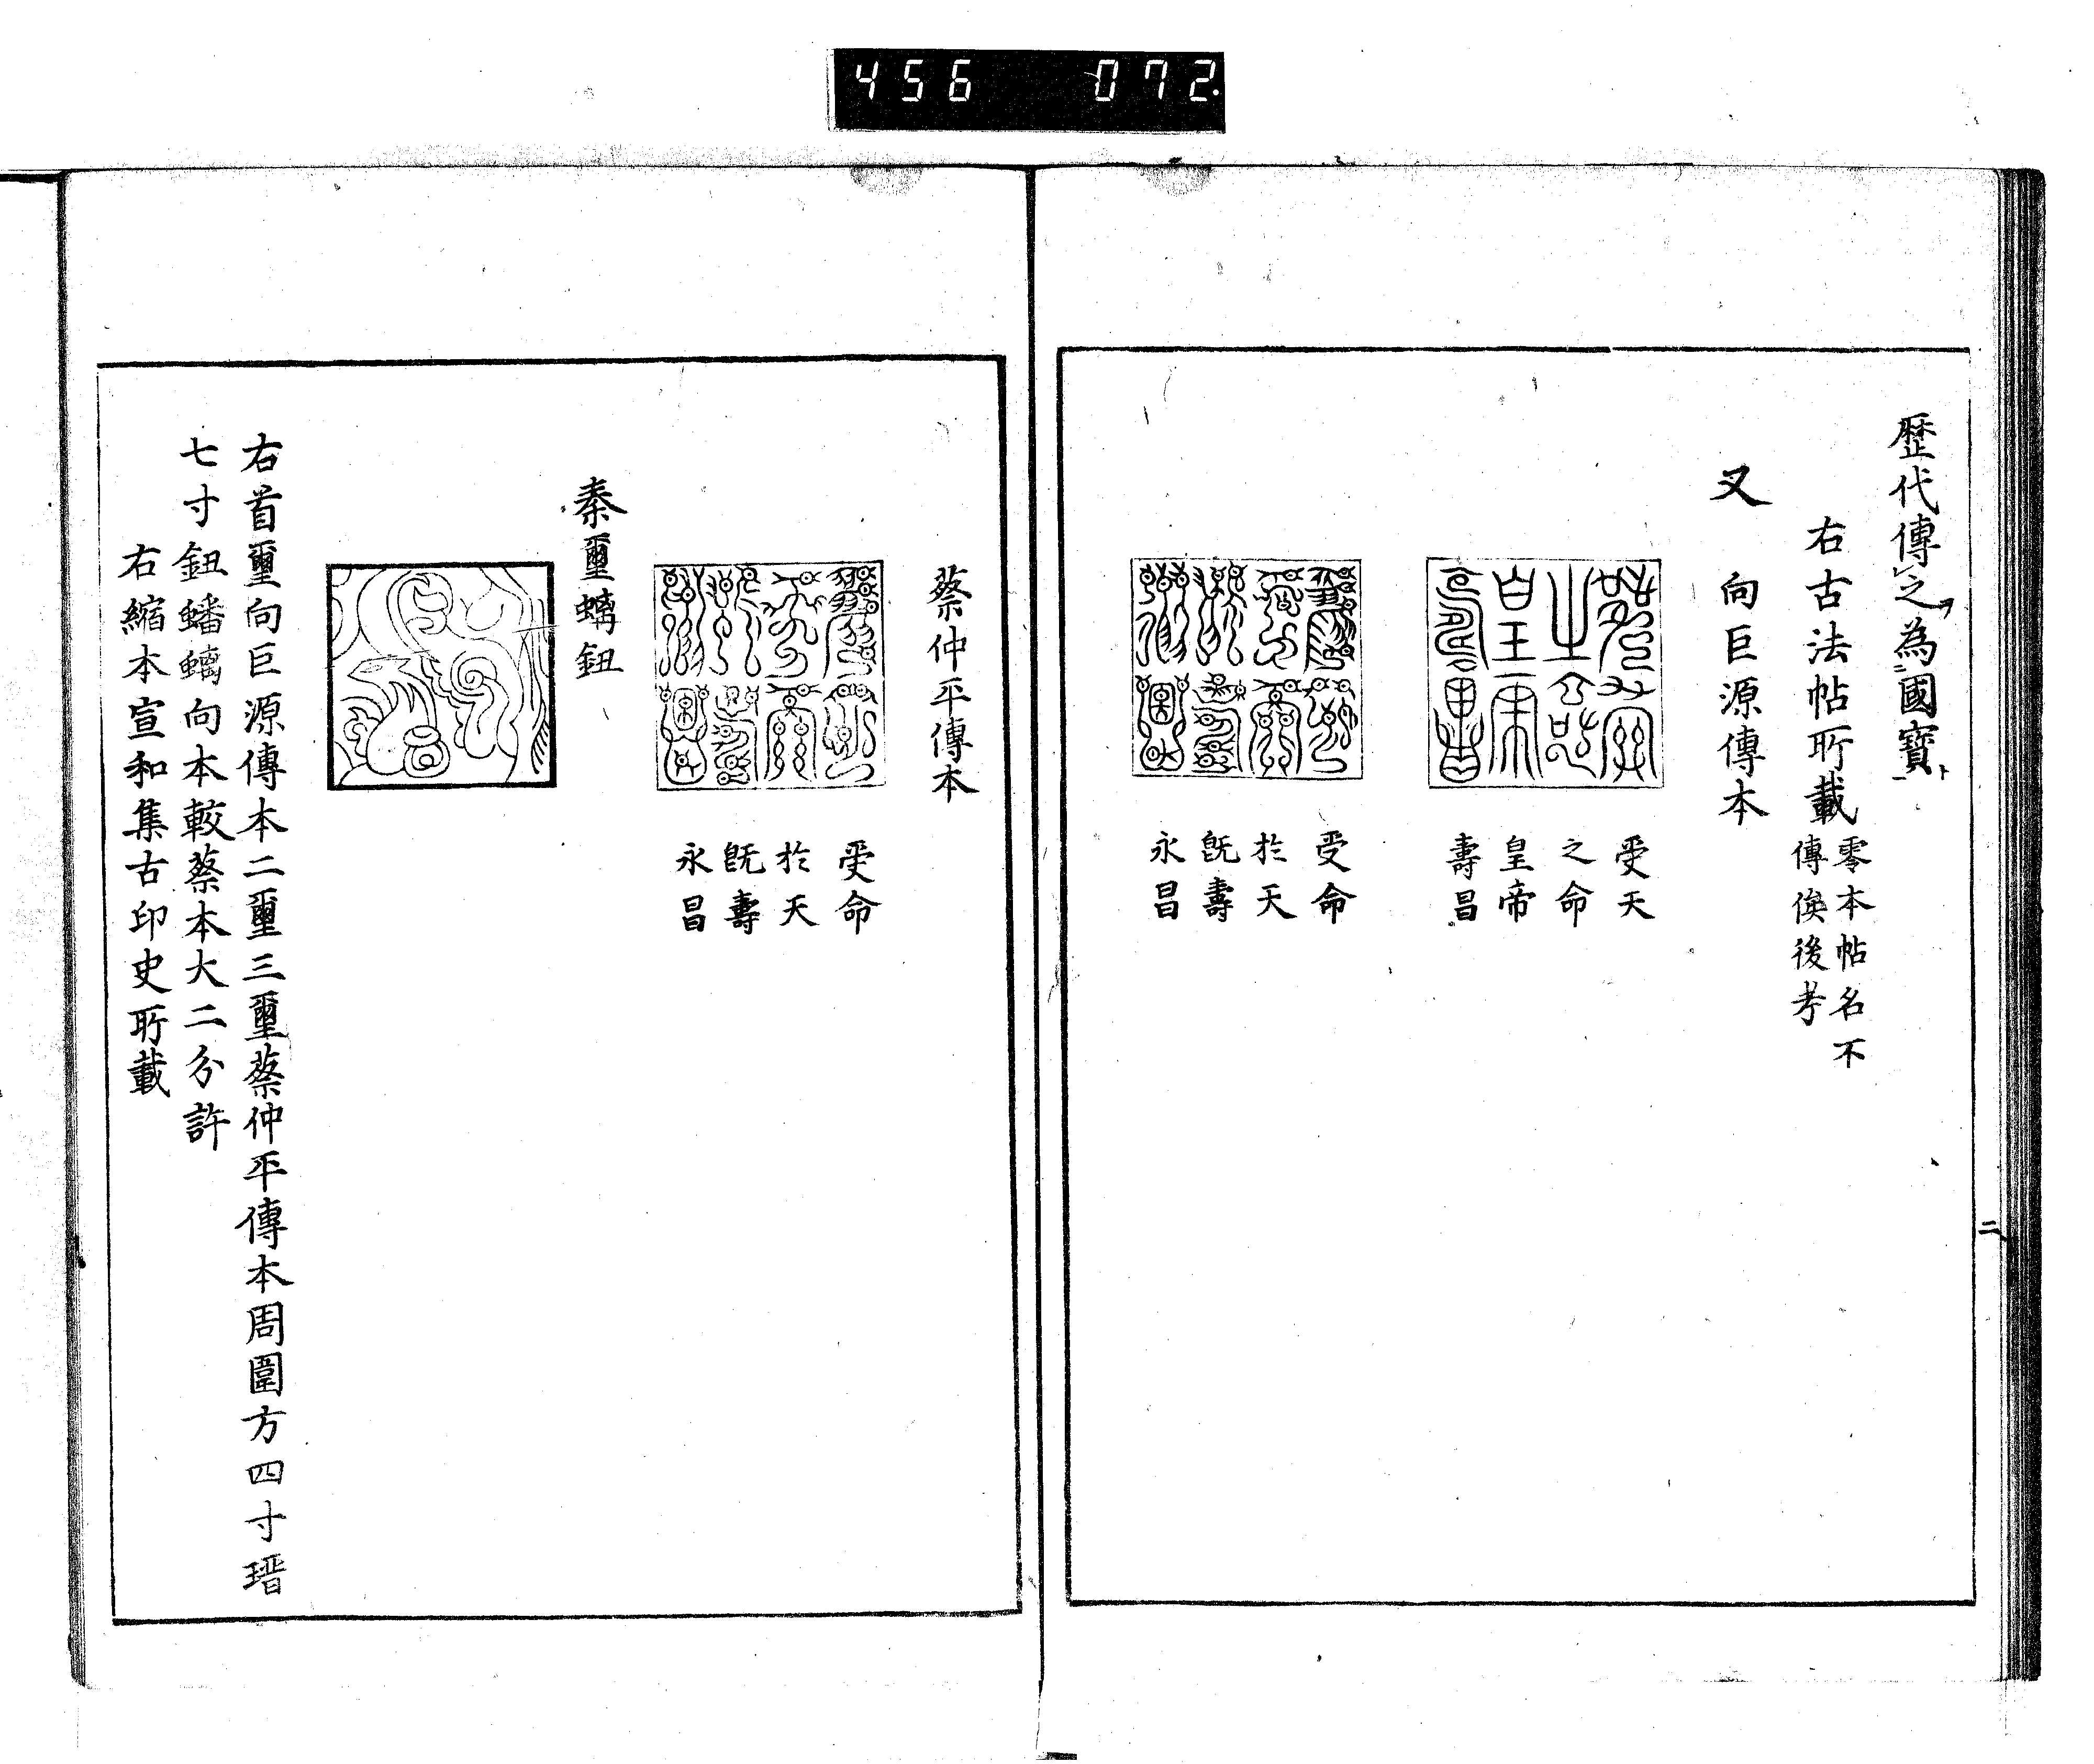 456 072.
歷代傳之為國寶
右古法帖所載
零本帖名不
傳俟後考
又 向巨源傳本
受天
之命
皇帝
壽昌
受命
於天
既壽
永昌
二
蔡仲平傳本
受命
於天
既壽
永昌
秦璽螭鈕
右首璽向巨源傳本二璽三璽蔡仲平傳本周圍方四寸瑨
七寸鈕蟠螭向本較蔡本大二分許
右縮本宣和集古印史所載